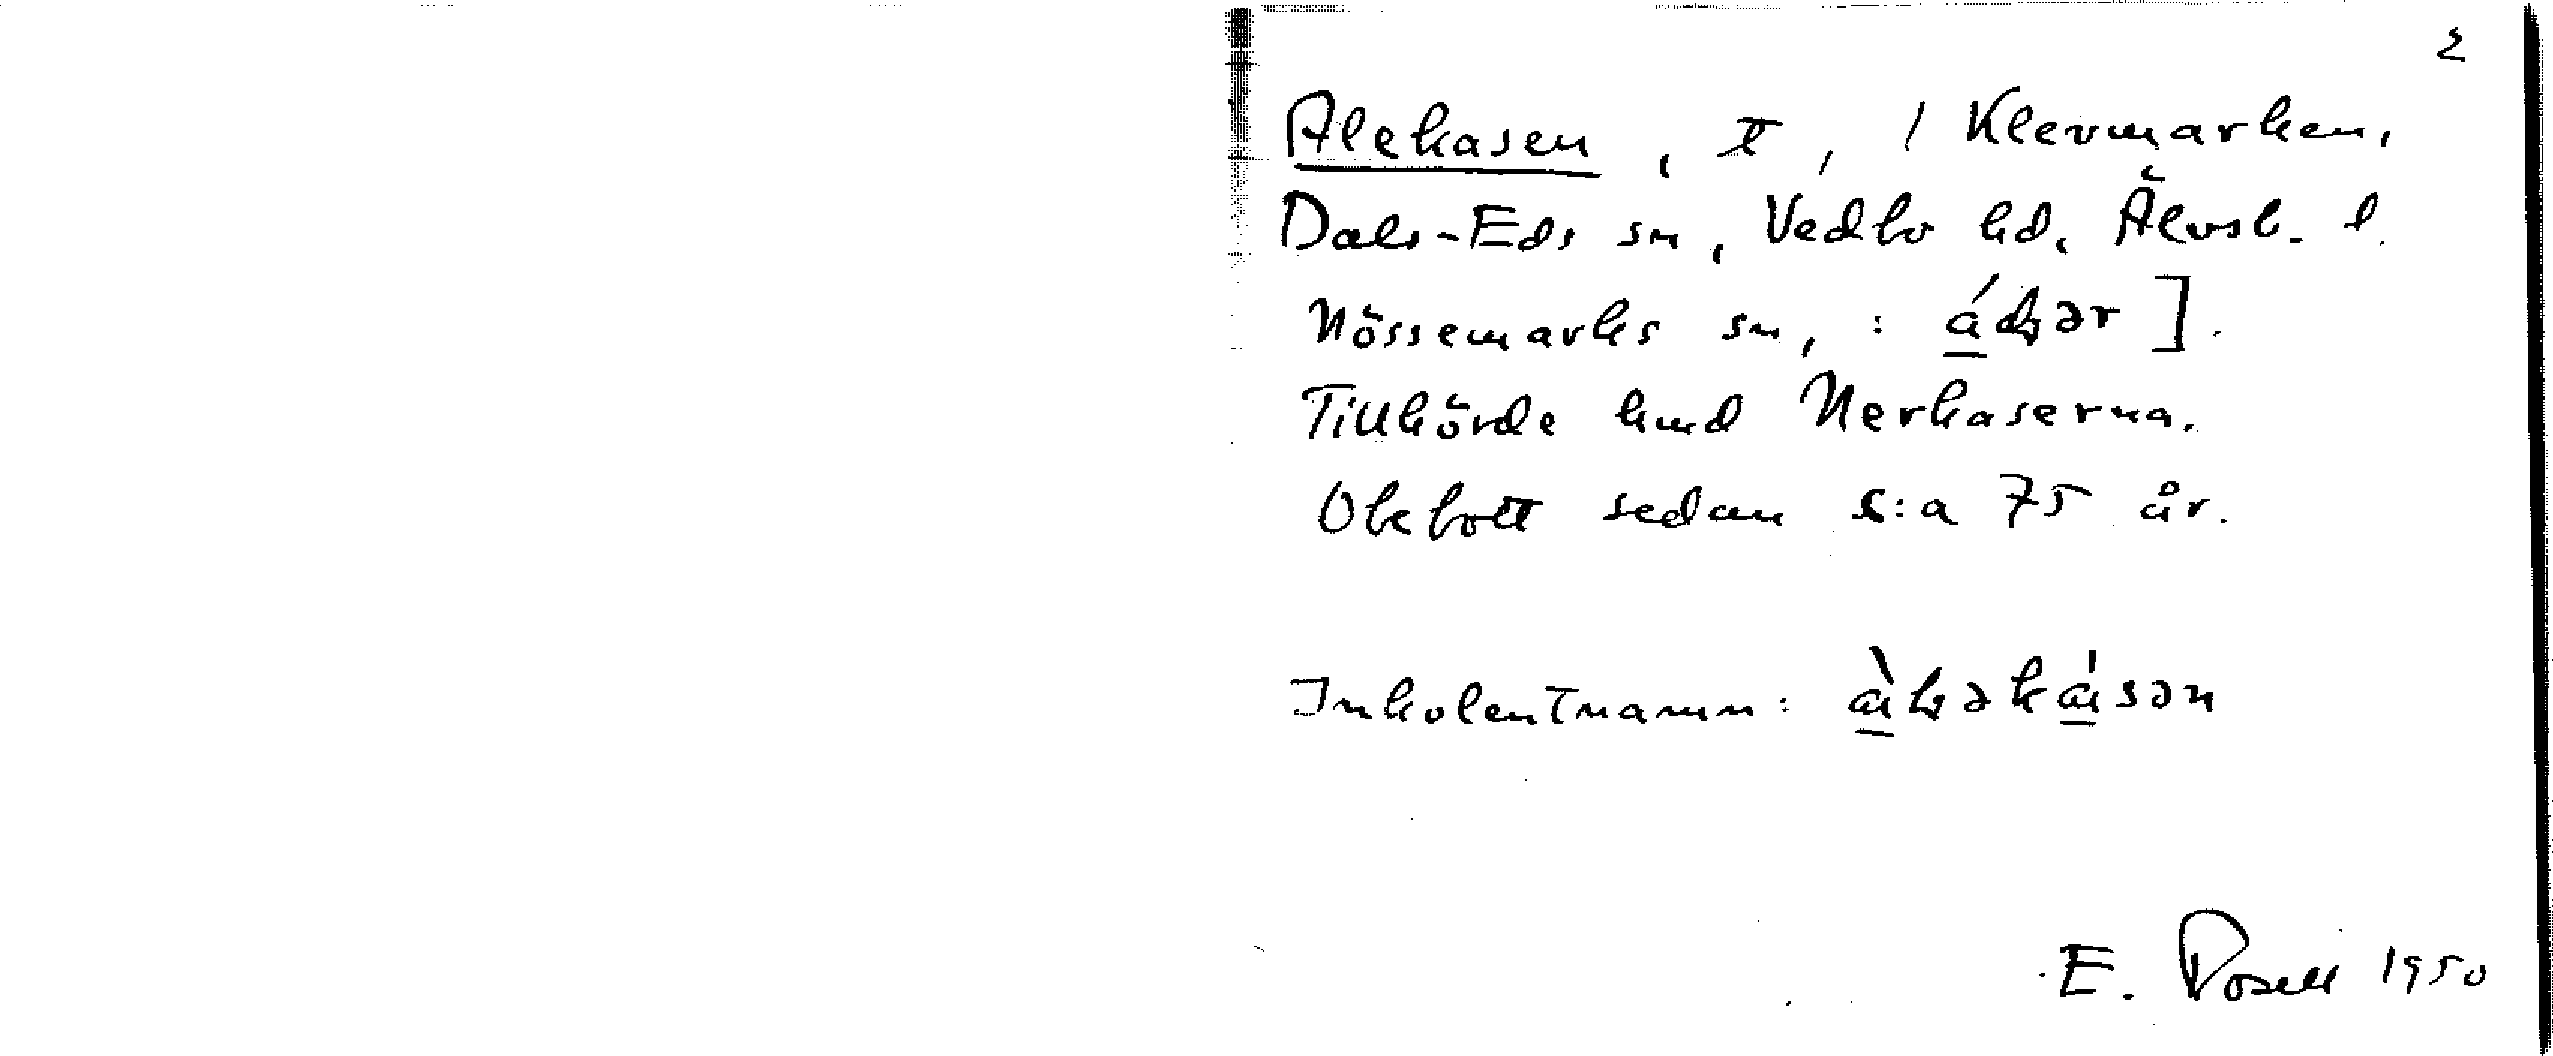 2
Alekasen, t, / Klevmarken,
Dals-Eds sn, Vedbo hd, Älvsb. l.
Nössemarks sn, :
Tillhörde hmd Nerkaserna.
Obebott sedan c:a 75 år.
Inkolentnamn:
E. Rosell 1950